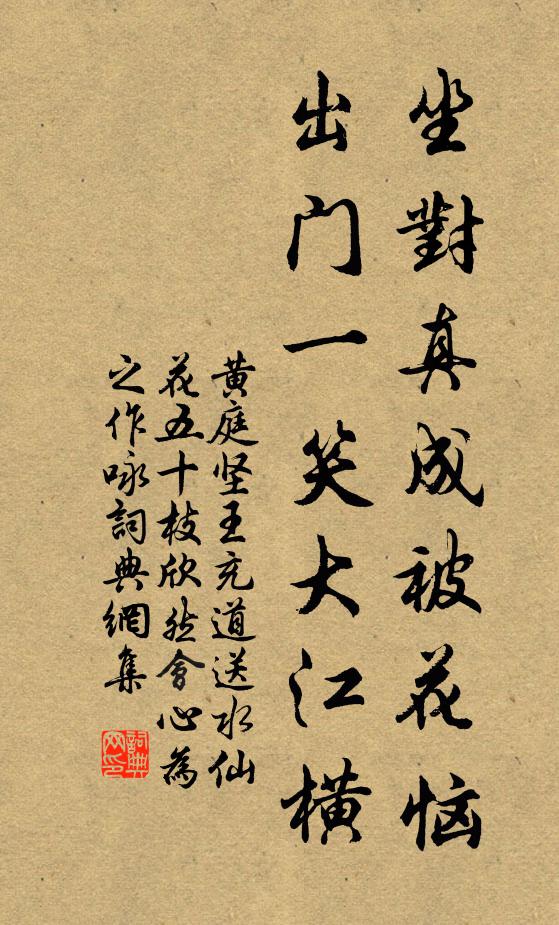 坐對真成被花恼
出门一笑大江横
黄庭坚王充道送水仙
花五十枝欣然會心為
之作咏詞典網集
詞典
网印